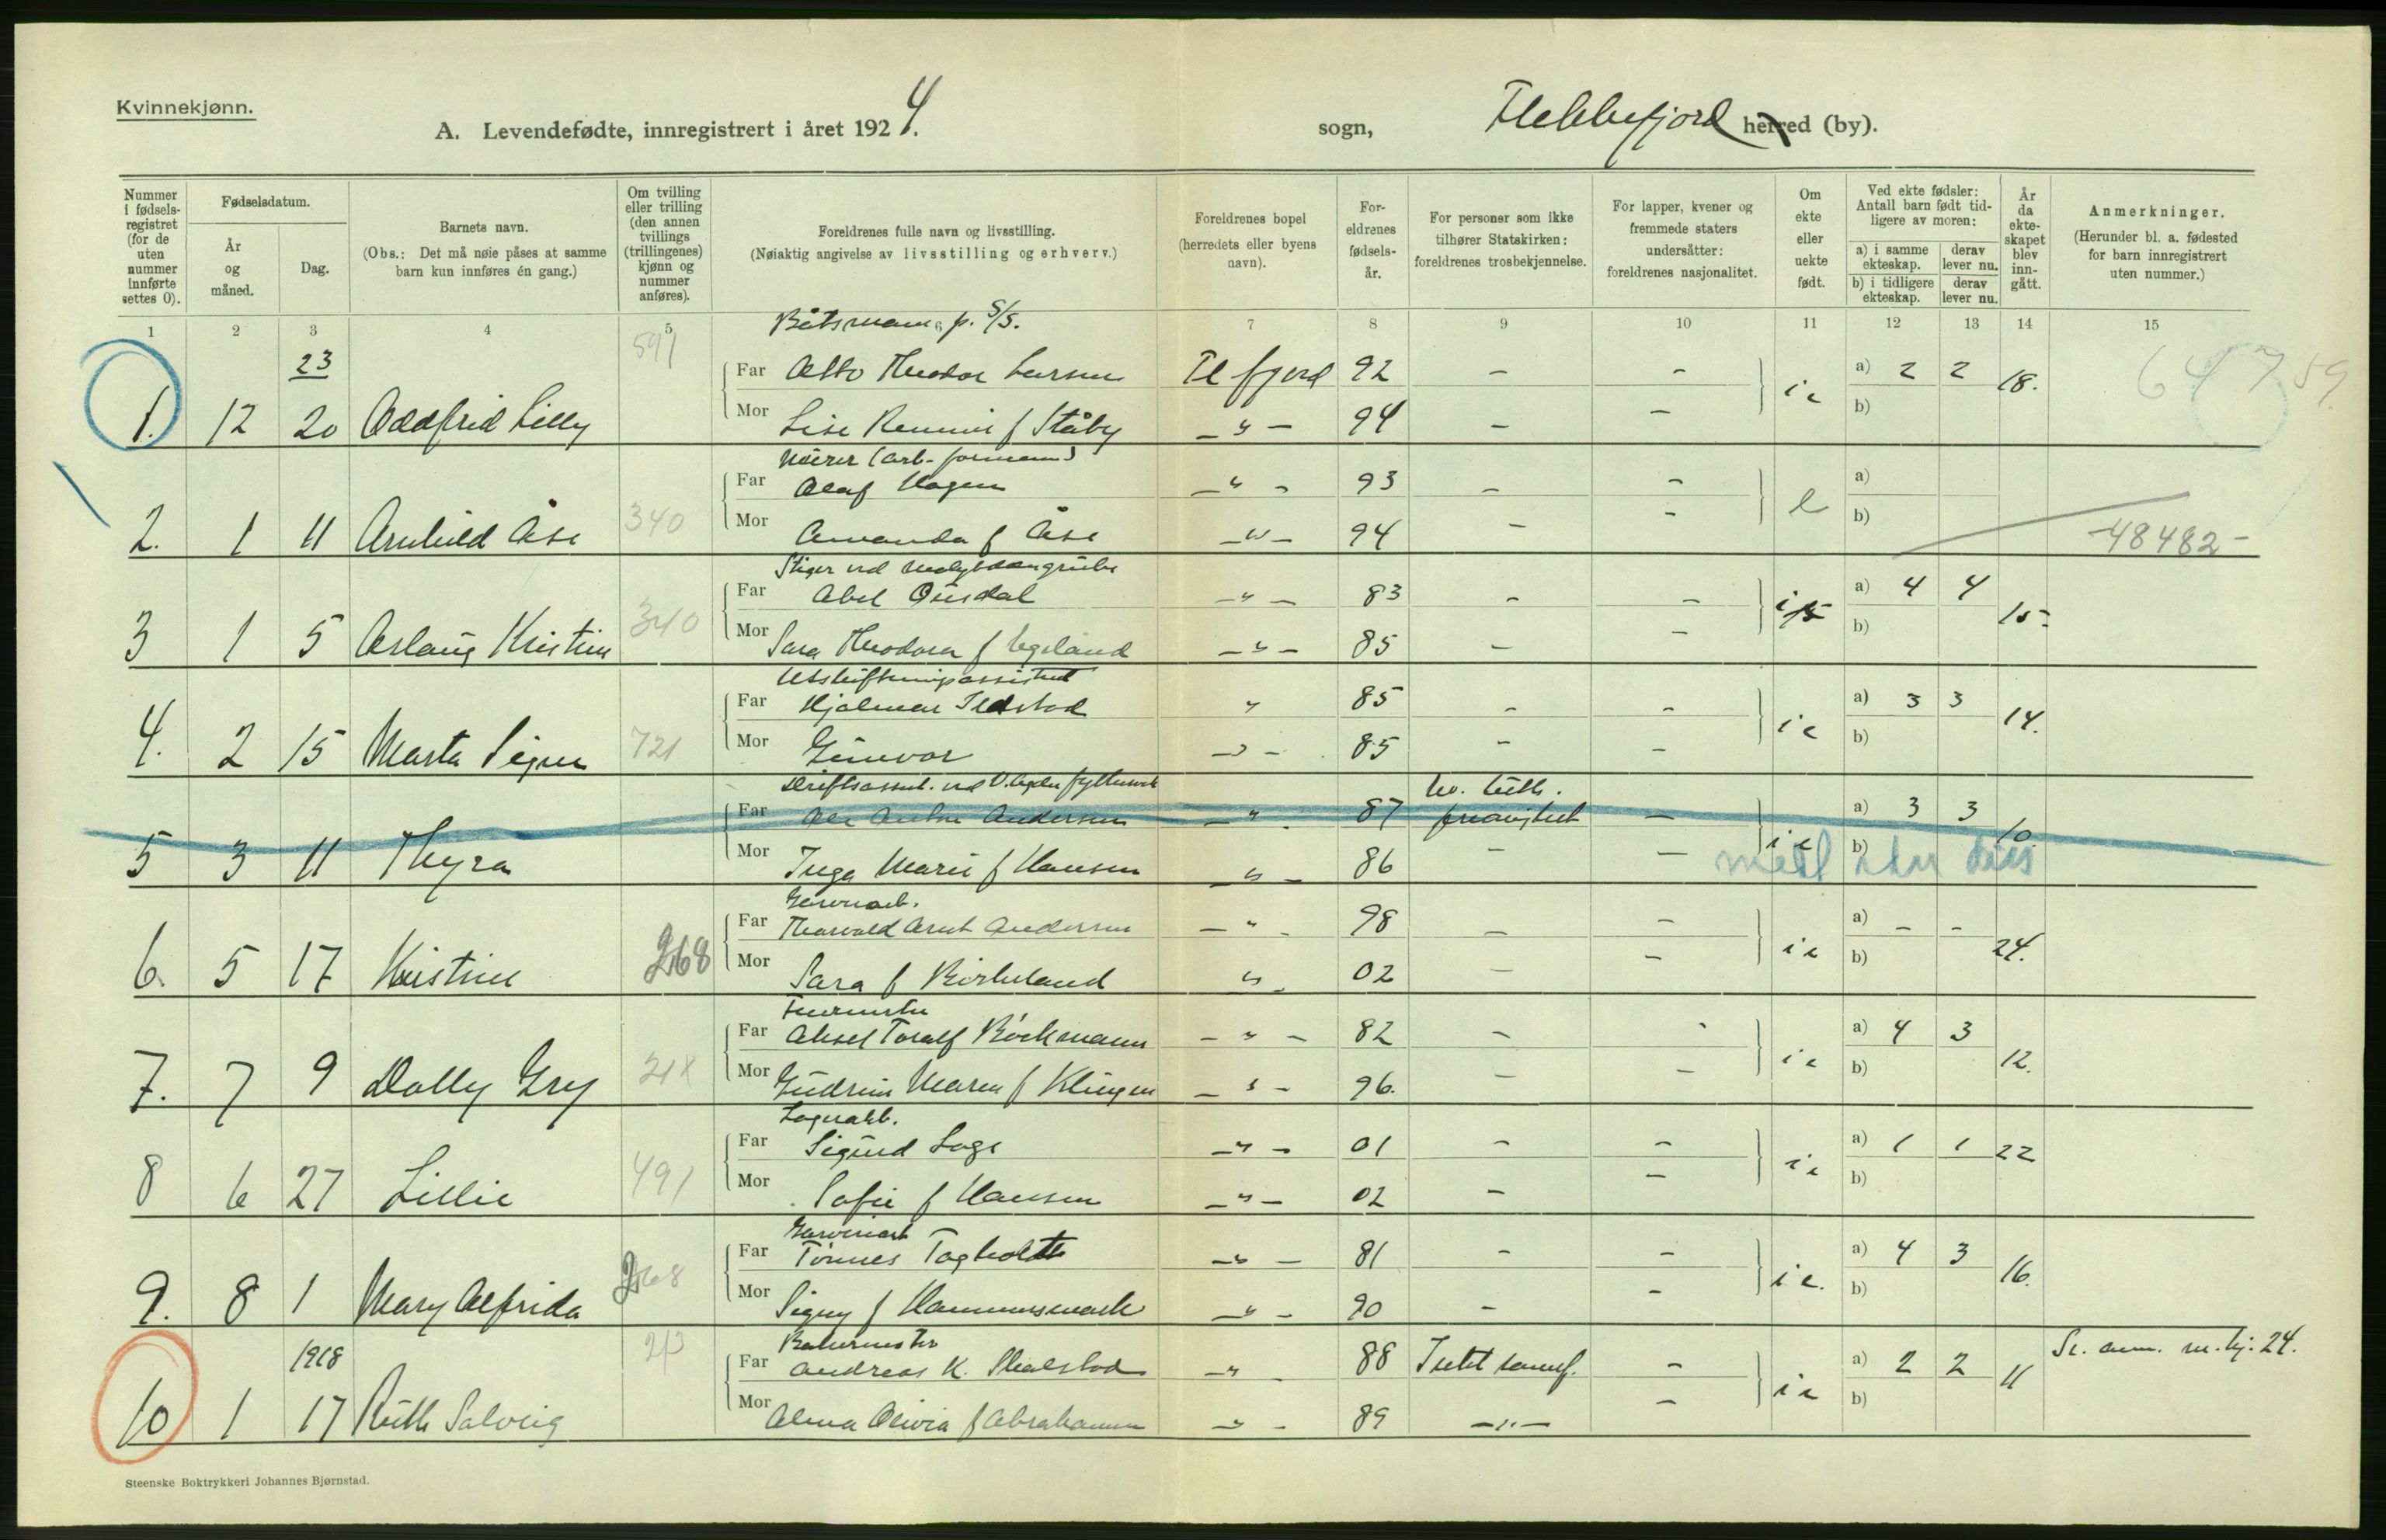 Kvinnekjønn.
A. Levendefødte, innregistrert i året 1924. sogn, Flekkefjord herred (by).
Nummer i fødselsregistret (for de uten nummer innførte settes 0).
Fødselsdatum.
År og måned.
Dag.
Barnets navn.
(Obs.: Det må nøie påses at samme barn kun innføres én gang.)
Om tvilling eller trilling (den annen tvillings (trillingenes) kjønn og nummer anføres).
Foreldrenes fulle navn og livsstilling.
(Nøiaktig angivelse av livsstilling og erhverv.)
Foreldrenes bopel (herredets eller byens navn).
Foreldrenes fødselsår.
For personer som ikke tilhører Statskirken: foreldrenes trosbekjennelse.
For lapper, kvener og fremmede staters undersåtter: foreldrenes nasjonalitet.
Om ekte eller uekte født.
Ved ekte fødsler: Antall barn født tidligere av moren:
a) i samme ekteskap. derav lever nu.
b) i tidligere ekteskap. derav lever nu.
År da ekteskapet blev inngått.
Anmerkninger.
(Herunder bl. a. fødested for barn innregistrert uten nummer.)
1 2 3 4 5 6 7 8 9 10 11 12 13 14 15
23 591 Båtsmann p. S/S.
Far Otto Theodor Larsen Fl fjord 92 – – a) 2 2 18. 64759
1. 12 20 Oddfrid Lilly Mor Lise Remine f Ståby –"– 94 – – i e b)
(arb. formann)
Far Olaf Hagen –"– 93 – – a)
2. 1 11 Arnhild Åse 340 Mor Amanda f Åse –"– 94 – – e b) -48482-
Stiger ved Molybdængrube
Far Abel Ousdal –"– 83 – – a) 4 4 15
3 1 5 Aslaug Kristine 340 Mor Sara Theodora f Egeland –"– 85 – – b)
Utskiftningsassistent
Far Hjalmar " 85 – – a) 3 3 14.
4. 2 15 Marta Signe 721 Mor Gunvor –"– 85 – – i e b)
Driftsassist. ved
Far Ole Anton Andersen –"– 87 ev. luth. frimenighet – a) 3 3 10.
5 3 11 Thyra Mor Inga Marie f Hansen –"– 86 – – i e b)
Garveriarb.
Far Thorvald Arnt Andersen –"– 98 – – a) – – 24.
6. 5 17 Kristine 268 Mor Sara f Birkeland " 02 – – i e b)
Far Aksel Toralf Böckmann –"– 82 – – a) 4 3 12.
7. 7 9 Dolly Gry Mor Gudrun Maren f Klungen –"– 96. – – i e b)
Lagerarb.
Far Sigurd Loge –"– 01 – – a) 1 1 22
8 6 27 Lillie 491 Mor Sofie f Hansen –"– 02 – – i e b)
Garveriarb
Far Tønnes Tagholdt –"– 81 – – a) 4 3 16.
9. 8 1 Mary Alfrida 268 Mor Signy f Hammersmark –"– 90 – – i e. b)
1918 213 Bakermester Se. anm. m.kj. 24.
Far Andreas K. Skalstad –"– 88 Intet samf. – a) 2 2 11
10 1 17 Ruth Solveig Mor Alma Olivia f Abrahamsen –"– 89 –"– – i e b)
Steenske Boktrykkeri Johannes Bjørnstad.